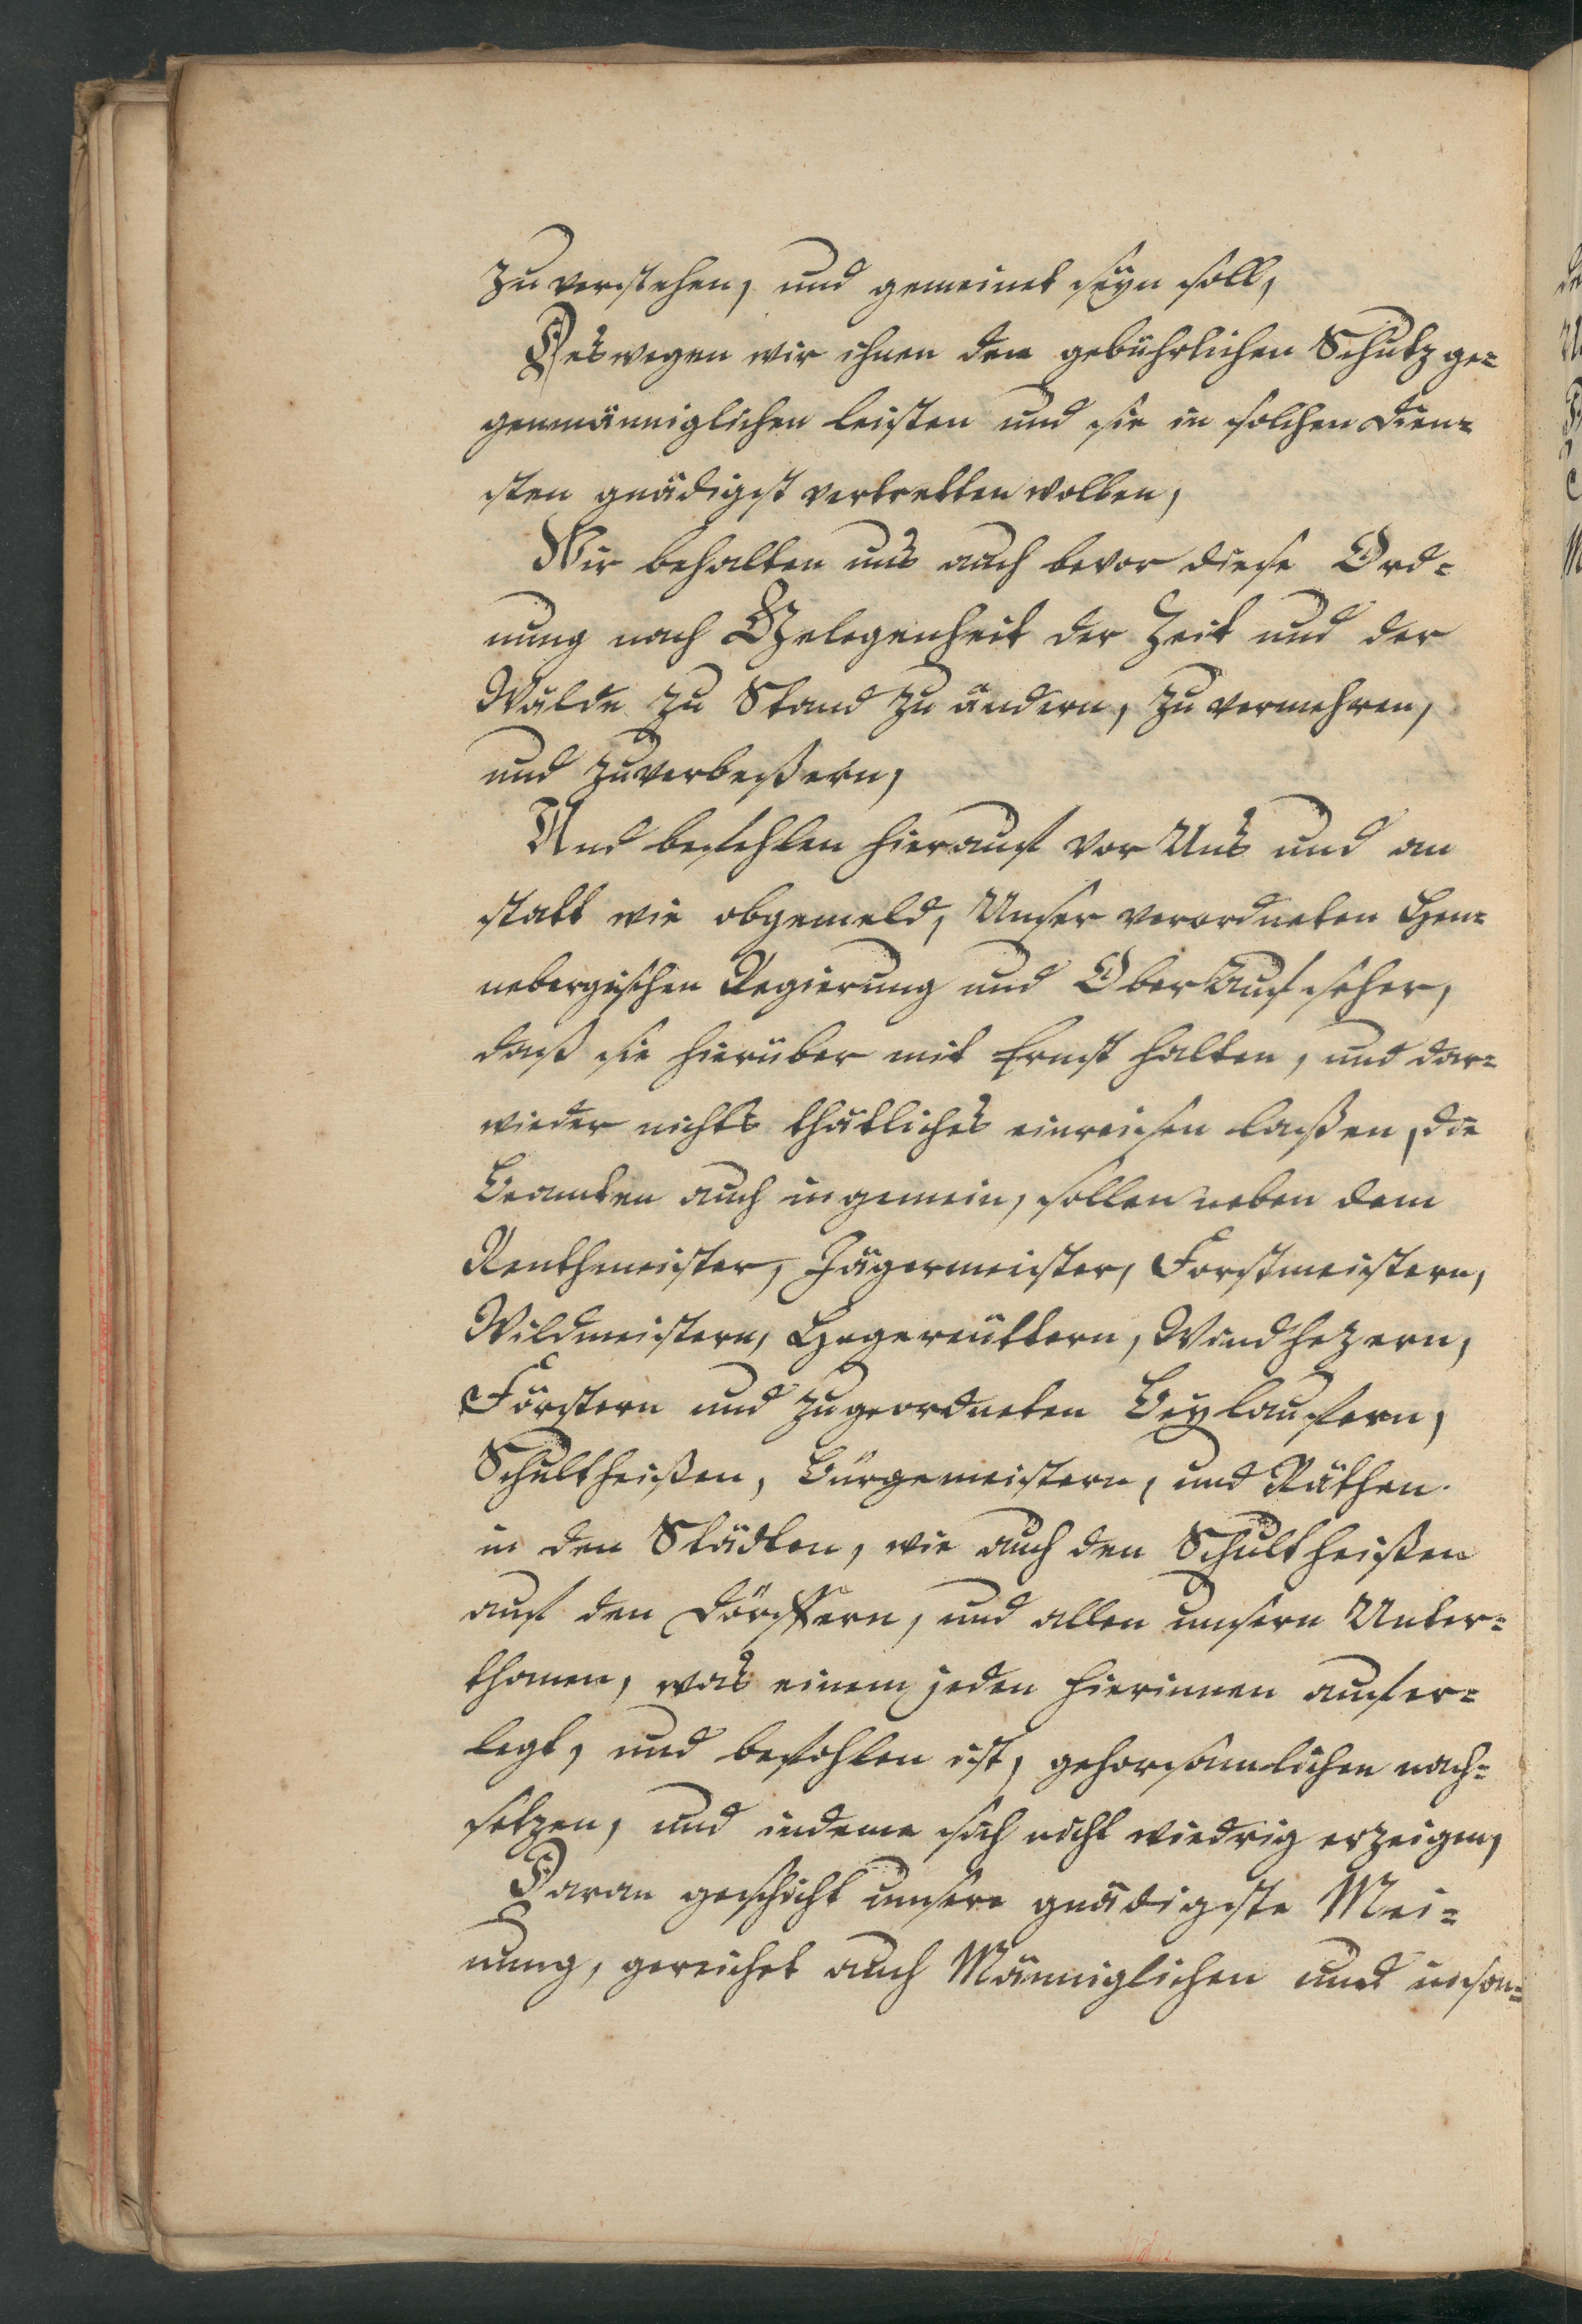 zu verstehen, und gemeinet seyn soll,
Deswegen wir ihnen den gebührlichen Schutz ge=
genmänniglichen leisten und sie in solchen Dien=
sten gnädigst vertretten wollen,
Wir behalten uns auch bevor diese Ord=
nung nach Gelegenheit der Zeit und der
Wälde zu Stand zu ändern, zu vermehren,
und zuverbeßern,
Und befehlen hierauf vor Uns und an
statt wie obgemeld, Unser verordneten Hen=
nebergischen Regierung und Ober Aufseher,
daß sie hierüber mit Ernst halten, und dar=
wieder nichts thätliches einreisen laßen, die
Beamten auch in gemein, sollen neben dem
Renthmeister, Jägermeister, Forstmeistern,
Wildmeistern, Hegereüttern, Windhezern,
Förstern und zugeordneten Beylaufern,
Schultheißen, Bürgemeistern, und Räthen.
in den Städten, wie auch den Schultheißen
auf den Dörffern, und allen unsern Unter=
thanen, was einem jeden hierinnen aufer=
legt, und befohlen ist, gehorsamlichen nach=
setzen, und indeme sich nicht wiedrig erzeigen,
Daran geschicht unsere gnädigste Mei=
nung, gereichet auch Männiglichen und inson=